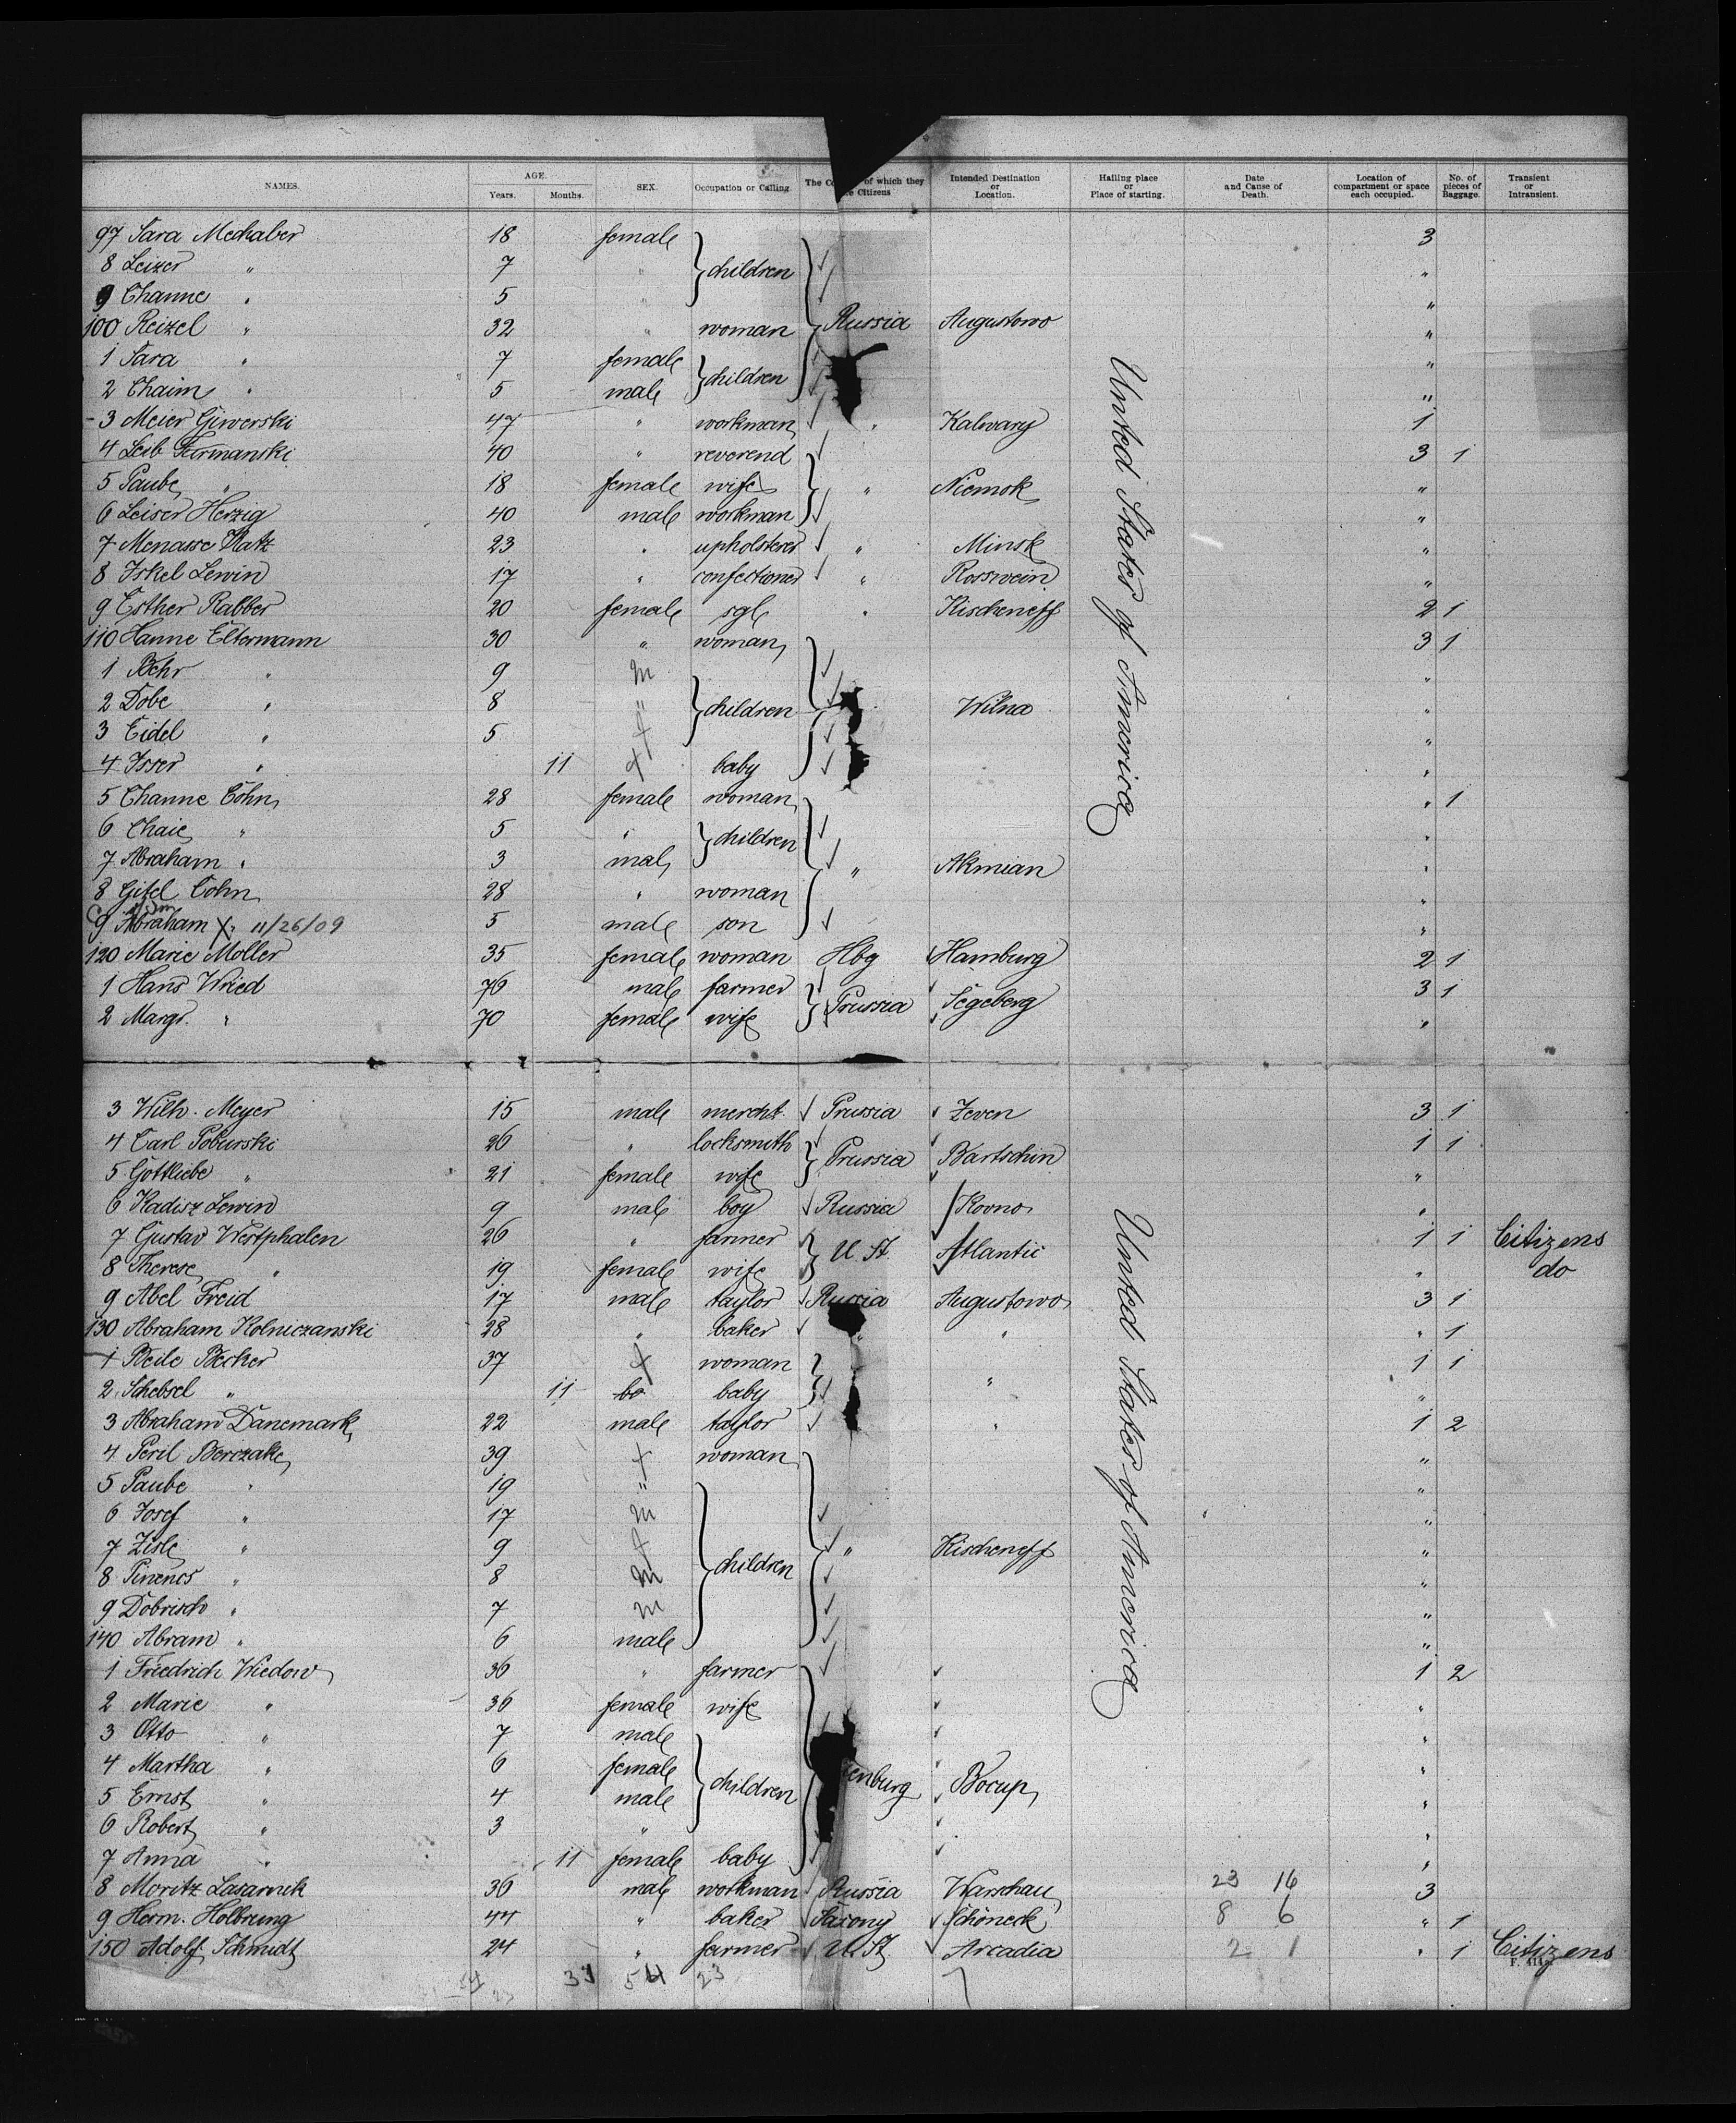 NAMES. AGE. Years. Months. SEX. Occupation or Calling. The Co of which they e Citizens Intended Destination or Location. Hailing place or Place of starting. Date and Cause of Death. Location of compartment or space each occupied. No. of pieces of Baggage. Transient or Intransient.
97 Sara Mechaber 18 female 3
8 Leizer " 7 " children "
9 Channe " 5 " "
100 Reizel " 32 " woman Russia Augustowo "
1 Sara " 7 female children "
2 Chaim " 5 male "
3 Meier Giwerski 47 " workman " Kalwary 1
4 Leib Farmanski 40 " reverend 3 1
5 Taube " 18 female wife " Niemok "
6 Leiser Herzig 40 male workman "
7 Menasse Katz 23 " upholsterer " Minsk "
8 Iskel Lewin 17 " confectioner " Rosswein "
9 Esther Rabber 20 female sgl " Kischeneff 2 1
110 Hanne Eltermann 30 " woman 3 1
1 Behr " 9 m "
2 Dobe " 8 " children Wilna "
3 Eidel " 5 f "
4 Isser " 11 f baby "
5 Channe Cohn 28 female woman " 1
6 Chaie " 5 " children "
7 Abraham " 3 male " Akmian "
8 Gitel Cohn 28 " woman "
9 Abraham X 11/26/09 5 male son "
120 Marie Moller 35 female woman Hbg Hamburg 2 1
1 Hans Wried 76 male farmer Prussia Segeberg 3 1
2 Margr. " 70 female wife "
United States of America
3 Wilh. Meyer 15 male mercht. Prussia Zeven 3 1
4 Carl Poburski 26 " locksmith Prussia Bartschin 1 1
5 Gottliebe " 21 female wife "
6 Kadisz Lewin 9 male boy Russia Kovno "
7 Gustav Westphalen 26 " farmer U. St. Atlantic 1 1 Citizens
8 Therese " 19 female wife " do
9 Abel Freid 17 male taylor Russia Augustowo 3 1
130 Abraham Kolniczanski 28 " baker " " " 1
1 Beile Becker 37 f woman 1 1
2 Schebsel " 11 bo baby " "
3 Abraham Danemark 22 male taylor " 1 2
4 Peril Berczake 39 f woman "
5 Taube " 19 " "
6 Josef " 17 m "
7 Zisle " 9 f children " Kischeneff "
8 Pinencs " 8 m "
9 Dobrisch " 7 m "
140 Abram " 6 male "
1 Friedrich Wiedow 36 " farmer 1 2
2 Marie " 36 female wife "
3 Otto " 7 male "
4 Martha " 6 female children enburg Bocup "
5 Ernst " 4 male "
6 Robert " 3 " "
7 Anna " 11 female baby "
8 Moritz Lasarnik 36 male workman Russia Warschau 23 16 3
9 Herm. Holbrung 44 " baker Saxony Schöneck 8 6 " 1
150 Adolf Schmidt 24 " farmer U. St. Arcadia 2 1 " 1 Citizens
United States of America
F. 414
54 23